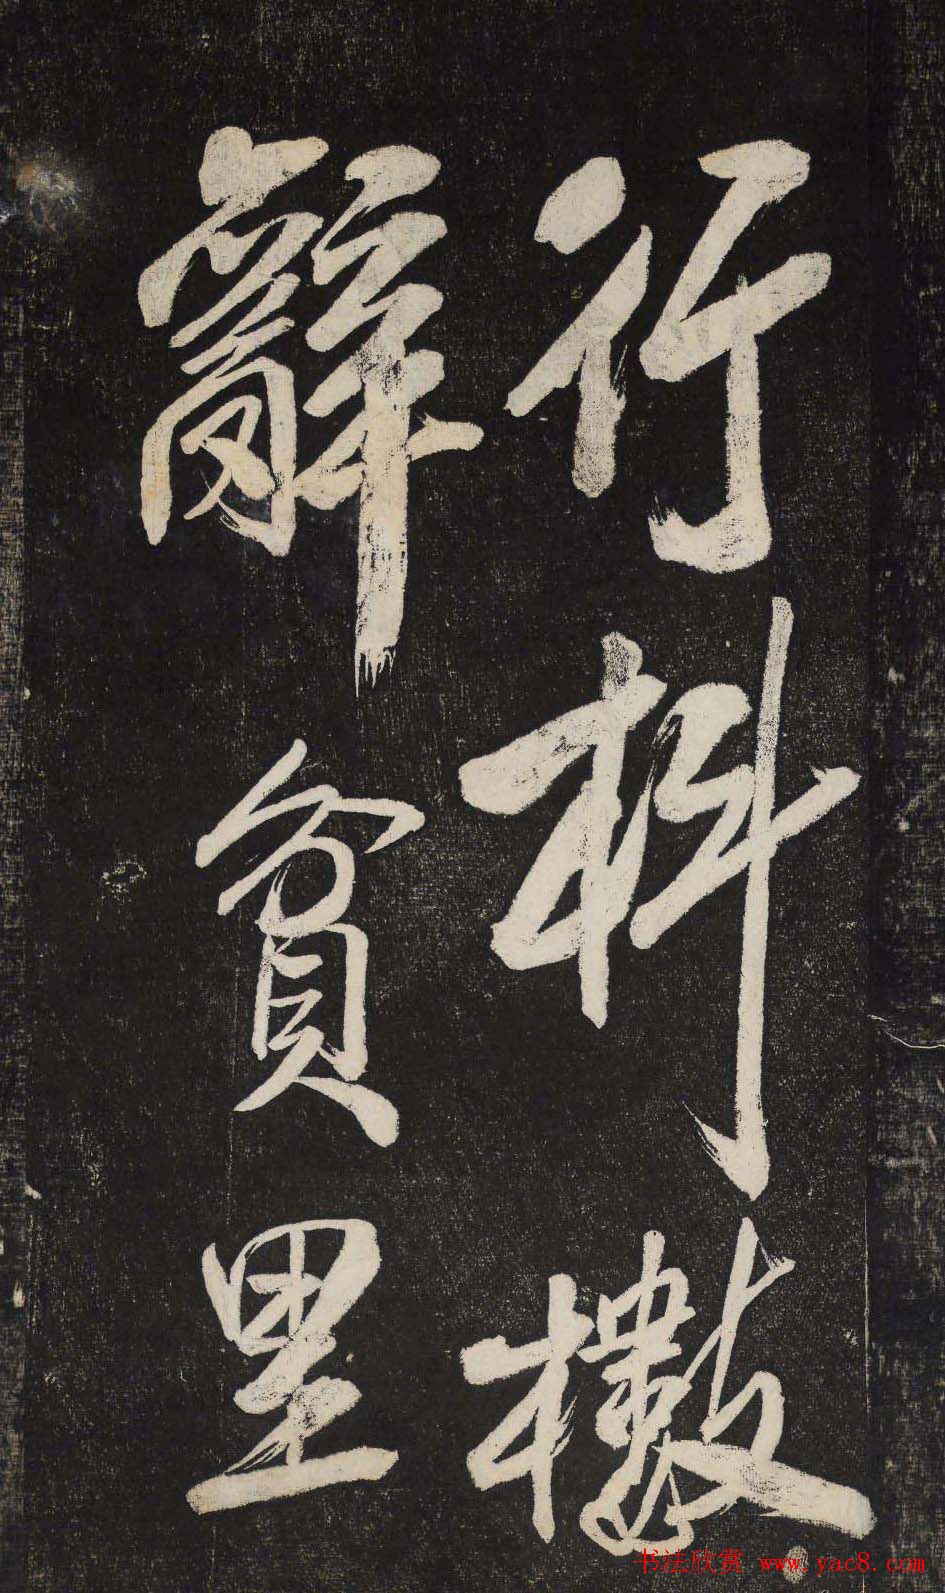 行檄
辭貧里
书法欣赏 www.yac8.com